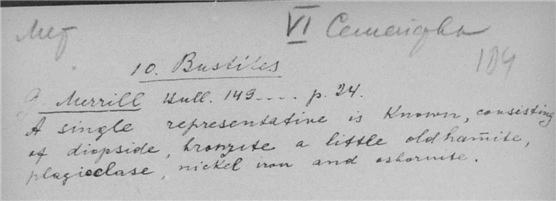 Мет VI Семёновка
184
10. Bustites
Merrill Bull. 149 ---- p. 24.
A single representative is known, consisting
of diopside, bronzite a little oldhamite,
plagioclase, nickel iron and osbornite.